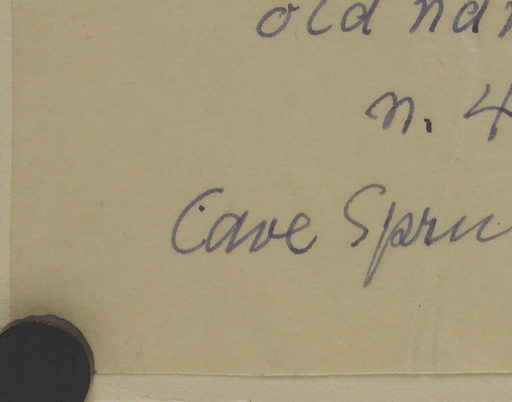 old nar
n. 4
Cave Spru